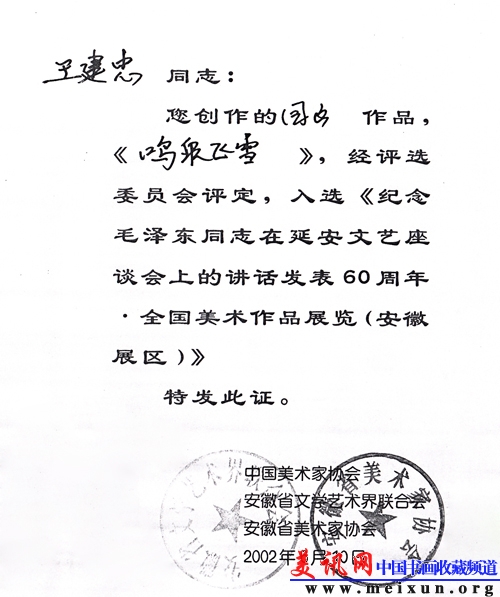 王建忠 同志：
您创作的国画 作品，
《 鸣泉飞雪 》，经评选
委员会评定，入选《纪念
毛泽东同志在延安文艺座
谈会上的讲话发表60周年
·全国美术作品展览（安徽
展区）》
特发此证。
中国美术家协会
安徽省文学艺术界联合会
安徽省美术家协会
2002年 月10日
安徽省美术家协会
美讯网 中国书画收藏频道
www.meixun.org